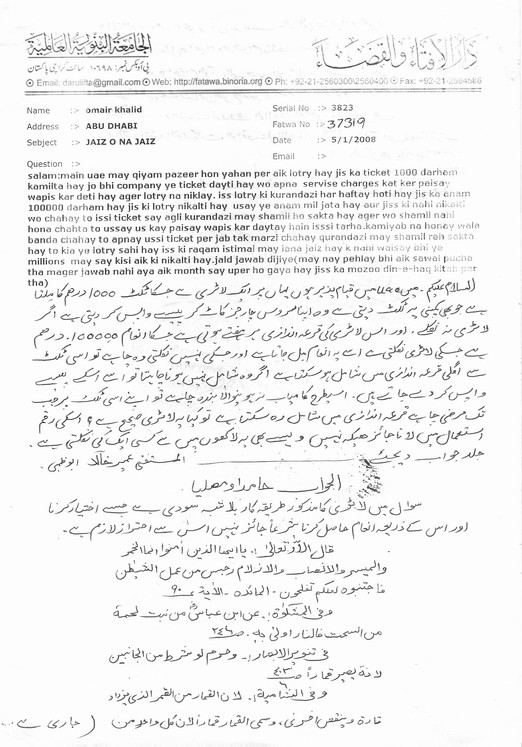 الجامعۃ البنوریۃ العالمیۃ
دار الافتاء والقضاء
پی او بکس نمبر: ۱۰۶۹۸، سائٹ کراچی پاکستان
Email: darulifta@gmail.com Web: http://fatawa.binoria.org Ph: +92-21-2560300\2560400 Fax: +92-21-2564586
Name :> omair khalid
Serial No :> 3823
Address :> ABU DHABI
Fatwa No :> 37319
Sebject :> JAIZ O NA JAIZ
Date :> 5/1/2008
Email :>
Question :>
salam:main uae may qiyam pazeer hon yahan per aik lotry hay jis ka ticket 1000 darham
kamilta hay jo bhi company ye ticket dayti hay wo apna servise charges kat ker paisay
wapis kar deti hay ager lotry na niklay. iss lotry ki kurandazi har haftay hoti hay jis ka anam
100000 darham hay jis ki lotry nikalti hay usay ye anam mil jata hay aur jiss ki nahi nikalti
wo chahay to issi ticket say agli kurandazi may shamil ho sakta hay ager wo shamil nahi
hona chahta to ussay us kay paisay wapis kar daytay hain isssi tarha.kamiyab na honay wala
banda chahay to apnay ussi ticket per jab tak marzi chahay qurandazi may shamil reh sakta
hay to kia ye lotry sahi hay iss ki raqam istimal may lana jaiz hay k nahi waisay bhi ye
millions may say kisi aik ki nikalti hay.jald jawab dijiye(may nay pehlay bhi aik sawal pucha
tha mager jawab nahi aya aik month say uper ho gaya hay jiss ka mozoo din-e-haq kitab per
tha)
السلام علیکم۔ میں uae میں قیام پذیر ہوں یہاں پر ایک لاٹری ہے جسکا ٹکٹ 1000 درھم کا ملتا
ہے جو بھی کمپنی یہ ٹکٹ دیتی ہے وہ اپنا سروس چارجز کاٹ کر پیسے واپس کر دیتی ہے اگر
لاٹری نہ نکلے۔ اور اس لاٹری کی قرعہ اندازی ہر ہفتے ہوتی ہے جسکا انعام 100000 درھم
ہے جسکی لاٹری نکلتی ہے اسے یہ انعام مل جاتا ہے اور جسکی نہیں نکلتی وہ چاہے تو اسی ٹکٹ
سے اگلی قرعہ اندازی میں شامل ہو سکتا ہے اگر وہ شامل نہیں ہونا چاہتا تو اسے اسکے پیسے
واپس کر دئے جاتے ہیں۔ اسیطرح کامیاب نہ ہونیوالا بندہ چاہے تو اپنے اسی ٹکٹ پر جب
تک مرضی چاہے قرعہ اندازی میں شامل رہ سکتا ہے تو کیا یہ لاٹری صحیح ہے؟ اسکی رقم
استعمال میں لانا جائز ھیکہ نہیں ویسے بھی یہ لاکھوں میں سے کسی ایک کی نکلتی ہے۔
جلد جواب دیجئے
المستفتی عمیر خالد ابوظہبی۔
الجواب حامداً ومصلیا
سوال میں لاٹری کا مذکور طریقہ کار بلاشبہ سودی ہے جسے اختیار کرنا
اور اس کے ذریعہ انعام حاصل کرنا شرعاً جائز نہیں اس سے احتراز لازم ہے۔
قال اللہ تعالیٰ: یا ایھا الذین آمنوا انما الخمر
والمیسر والانصاب والازلام رجس من عمل الشیطن
فاجتنبوہ لعلکم تفلحون۔ المائدہ۔ الآیۃ ۹۰
وفی المشکوٰۃ: عن ابن عباسؓ من نبت لحمہ
من السحت فالنار اولیٰ بہ۔ ص۲۴۶
فی تنویر الابصار: وحرم لو شرط من الجانبین
لانہ یصیر قماراً ص۴۰۳
وفی الشامیۃ: لان القمار من القمر الذی یزداد
تارۃ وینقص اخریٰ، وسمی القمار قماراً لان کل واحد من (جاری ہے...